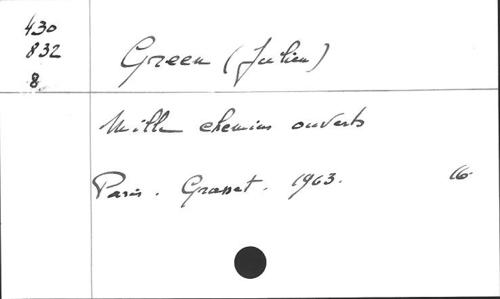 430
832
8
Green (Julien)
Mille chemins ouverts
Paris. Grasset. 1963. 16.